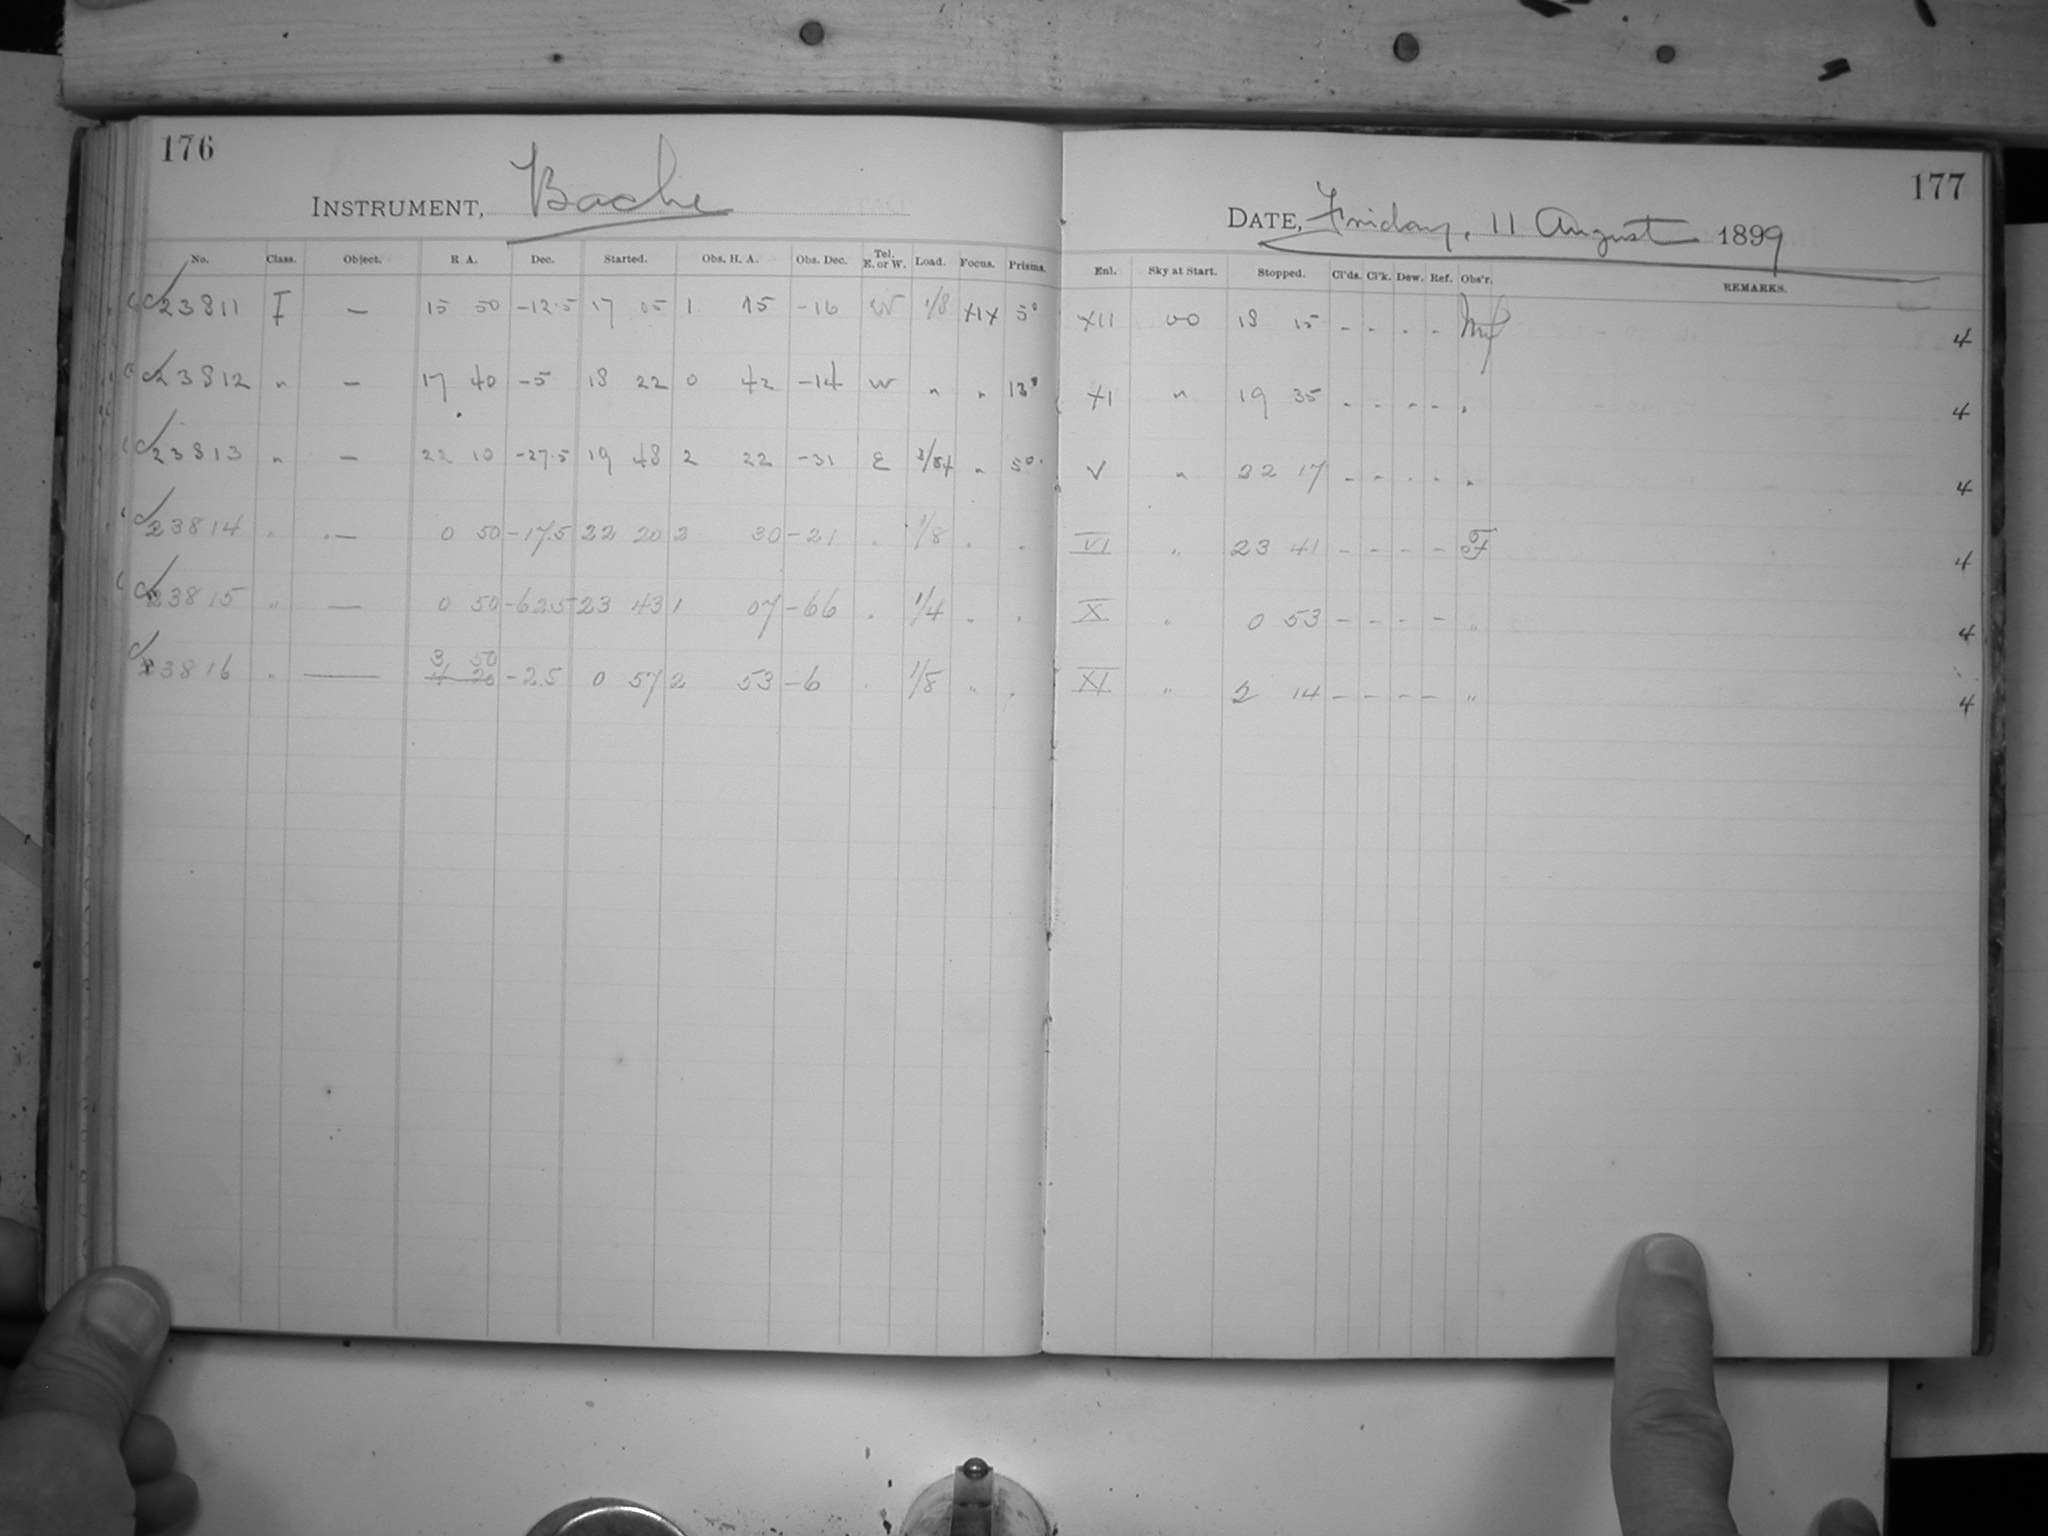 176
INSTRUMENT, Bache
No. Class. Object. R. A. Dec. Started. Obs. H. A. Obs. Dec. Tel. E. or W. Load. Focus. Prisms.
C 23811 I — 15 50 -12.5 17 05 1 15 -16 W 1/8 XIX 5°
C 23812 " — 17 40 -5 18 22 0 42 -14 W " " 13°
C 23813 " — 22 10 -27.5 19 48 2 22 -31 E " 5°
C 23814 " — 0 50 -17.5 22 20 2 30 -21 " 1/8 " "
C 23815 " — 0 50 -62.5 23 43 1 07 -66 " 1/4 " "
C 23816 " — 3 50 4 20 -2.5 0 57 2 53 -6 " 1/8 " "
177
DATE, Friday, 11 August 1899
Enl. Sky at Start. Stopped. Cl'ds. Cl'k. Dew. Ref. Obs'r. REMARKS.
XII 18 15 - - - - 4
XI " 19 35 - - - - " 4
V " 22 17 - - - - " 4
VI " 23 41 - - - - F 4
X " 0 53 - - - - " 4
XI " 2 14 - - - - " 4